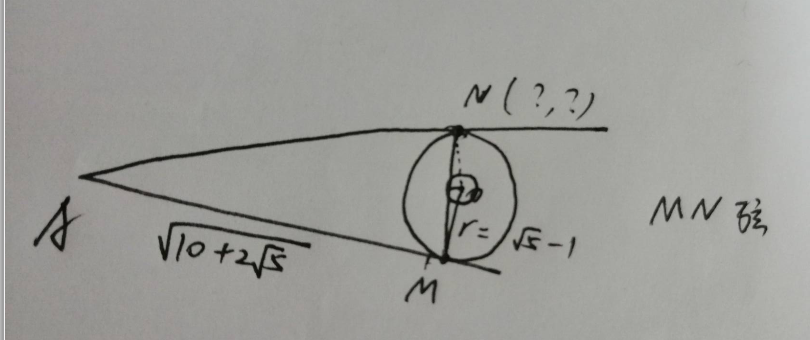 N(?,?)
A
√10+2√5
r=√5-1
MN弦
M